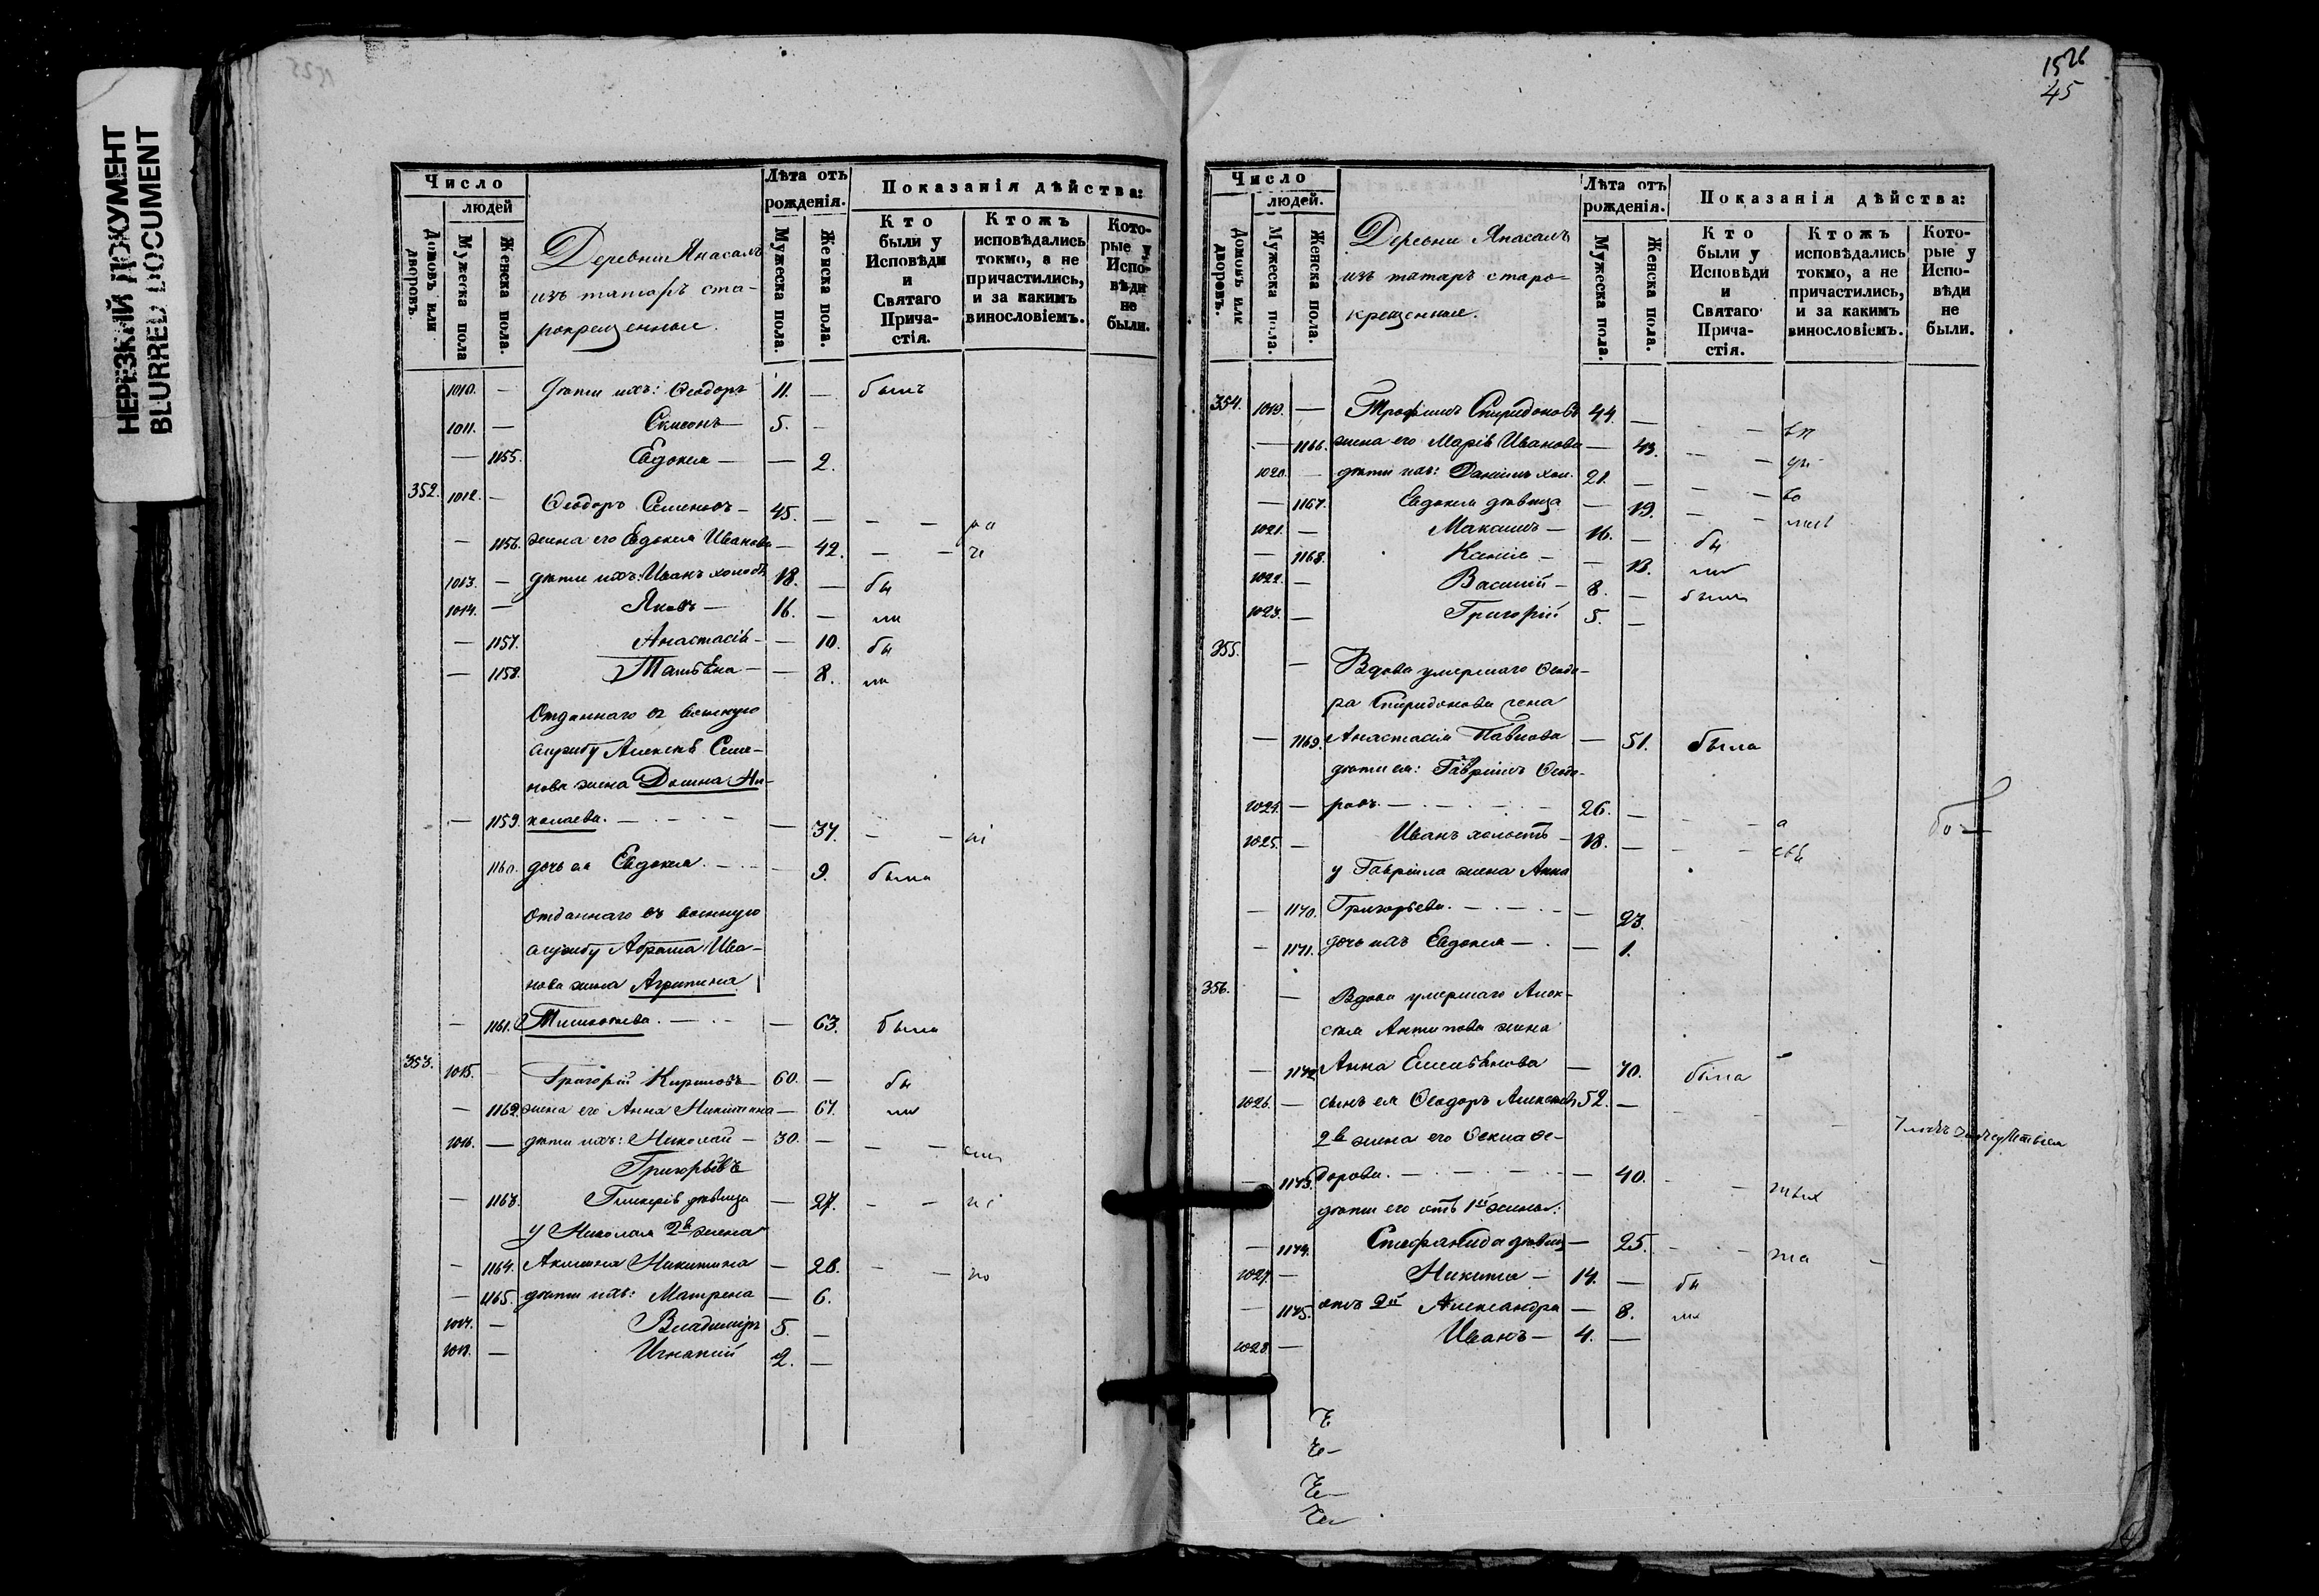 НЕРЕЗКИЙ ДОКУМЕНТ
BLURRED DOCUMENT
Число
людей
Домовъ или дворовъ.
Мужеска пола
Женска пола.
Деревни Янасалъ
изъ татаръ ста-
рокрещенные.
Лѣта отъ рожденія.
Мужеска пола.
Женска пола.
Показанія дѣйства:
Кто были у Исповѣди и Святаго Прича-стія.
Ктожъ исповѣдались токмо, а не причастились, и за какимъ винословіемъ.
Кото-рые у Испо-вѣди не были.
1010. — Дѣти ихъ: Ѳеодоръ 11. — былъ
1011. — Симеонъ — 5. —
— 1155. Евдокия — — 2.
352. 1012. — Ѳеодоръ Семеновъ — 45. — — —
— 1156. жена его Евдокия Иванова — 42. — —
1013. — дѣти ихъ: Иванъ холостъ 18. — бы
1014. — Яковъ — 16. — ли
— 1157. Анастасія — — 10. бы
— 1158. Татьяна — — 8. ли
Отданнаго въ военную
службу Алексѣя Семе-
нова жена Домна Ни-
— 1159. колаева. — — 37. — —
1160. дочь ея Евдокия. — — 9. была
Отданнаго въ военную
службу Абрама Ива-
нова жена Агрипина
— 1161. — — 63. была
353. 1015. — Григорій Кириловъ — 60. — бы
— 1162. жена его Анна Никитина — 61. ли
1016. — дѣти ихъ: Николай — 30. — — —
Григорьевъ
— 1163. Гликерія дѣвица — 27. — —
у Николая 2я жена
— 1164. Акилина Никитина — 28. — —
— 1165. дѣти ихъ: Матрена — 6.
1017. — Владимиръ 5. —
1018. — Игнатий 2. —
1526
45
Число
людей.
Домовъ или дворовъ.
Мужеска пола.
Женска пола.
Деревни Янасалъ
изъ татаръ старо-
крещенные.
Лѣта отъ рожденія.
Мужеска пола.
Женска пола.
Показанія дѣйства:
Кто были у Исповѣди и Святаго Прича-стія.
Ктожъ исповѣдались токмо, а не причастились, и за какимъ винословіемъ.
Кото-рые у Испо-вѣди не были.
354. 1019. — Трофимъ Спиридоновъ 44. —
— 1166. жена его Марія Иванова — 43. — —
1020. — дѣти ихъ: Даніилъ хол. 21. — — —
— 1167. Евдокия дѣвица — 19. — —
1021. — Максимъ — 16. — бы
— 1168. Ксенія — — 13. ли
1022. — Василий — 8. — были
1023. — Григорій 5. —
355. — Вдова умершаго Ѳеодо-
ра Спиридонова жена
— 1169. Анастасія Павлова — 51. была
дѣти ея: Гавріилъ Ѳеодо-
1024. — ровъ. — 26. —
1025. — Иванъ холостъ — 18. — — —
у Гавріила жена Анна
— 1170. Григорьева. — — 23.
— 1171. дочь ихъ Евдокия — — 1.
356. — Вдова умершаго Алек-
сѣя Антипова жена
— 1172. Анна Емельянова — 70. была
1026. — сынъ ея Ѳеодоръ Алексѣевъ 52. —
2я жена его Ѳекла Ѳе-
— 1173. дорова. — — 40. — —
дѣти его отъ 1й жены:
— 1174. Стефанида дѣвица — 25. — —
1027. — Никита — 14. — бы
— 1175. отъ 2й Александра — 8. ли
1028. — Иванъ — 4. —